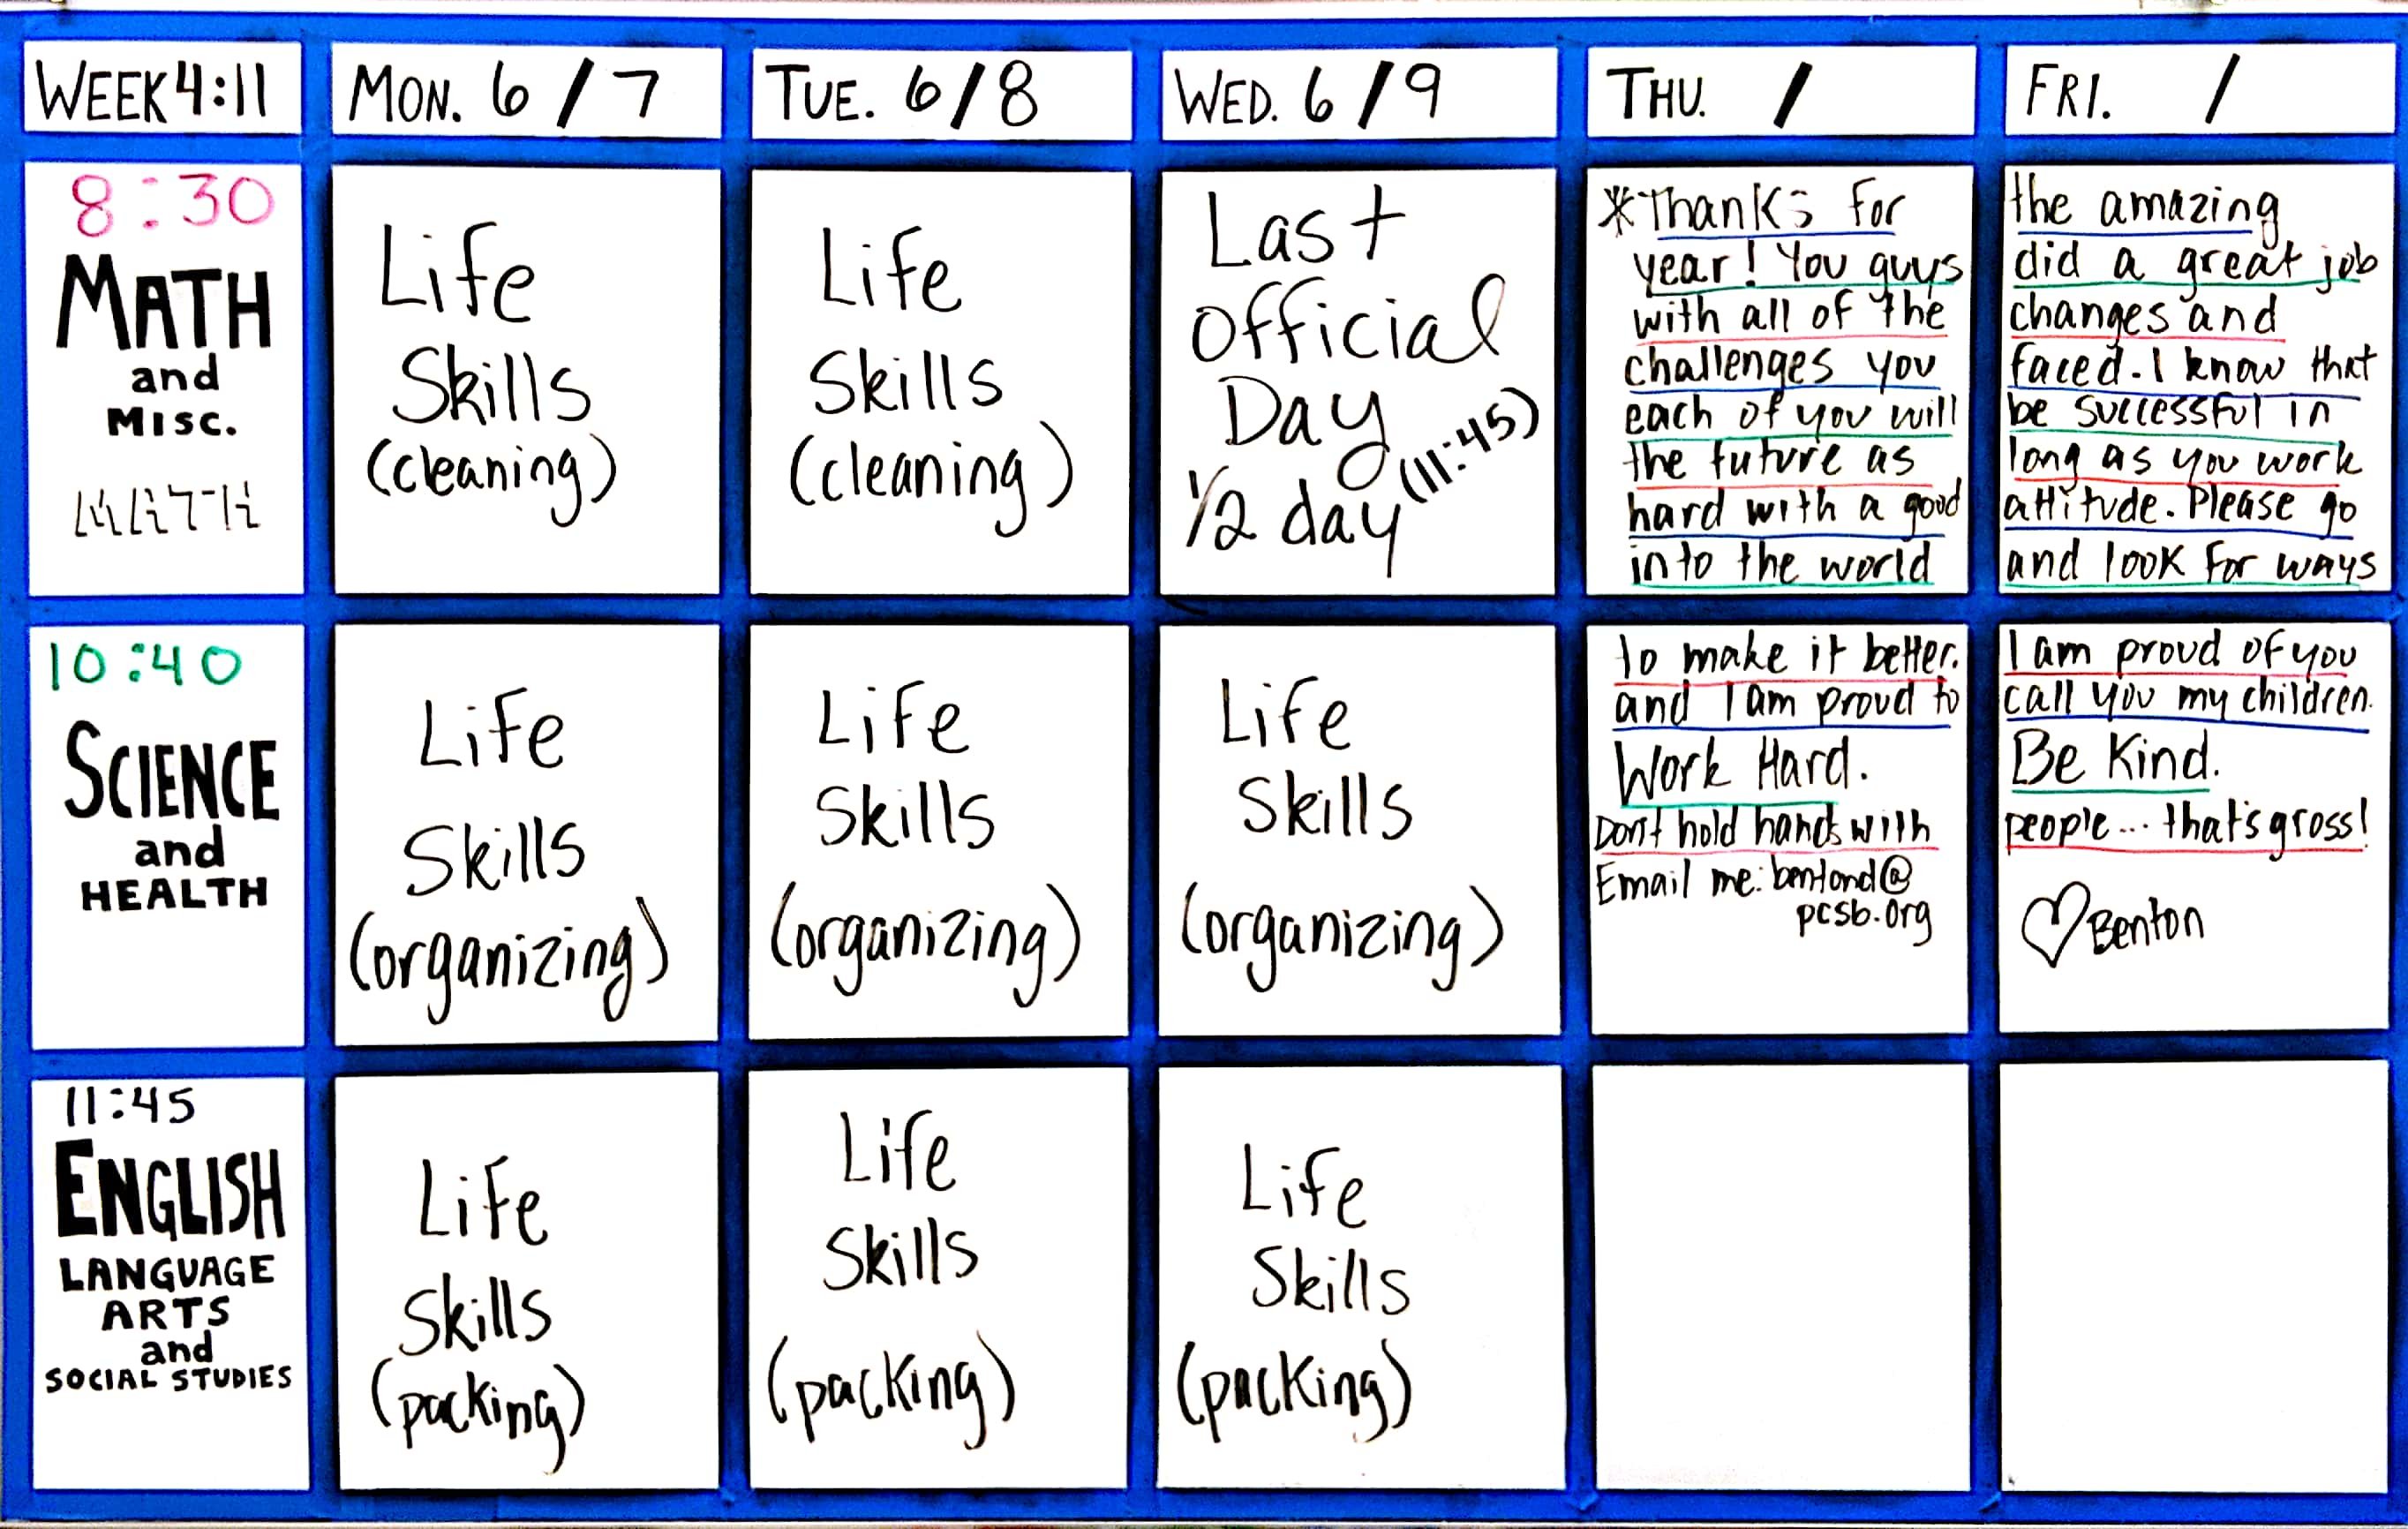 WEEK 4:11
MON. 6/7
TUE. 6/8
WED. 6/9
THU. /
FRI. /
8:30
MATH
and
MISC.
Life
Skills
(cleaning)
Life
Skills
(cleaning)
Last
Official
Day
1/2 day (11:45)
*Thanks for the amazing
year! You guys did a great job
with all of the changes and
challenges you faced. I know that
each of you will be successful in
the future as long as you work
hard with a good attitude. Please go
into the world and look for ways
10:40
SCIENCE
and
HEALTH
Life
Skills
(organizing)
Life
Skills
(organizing)
Life
Skills
(organizing)
to make it better. I am proud of you
and I am proud to call you my children.
Work Hard. Be Kind.
Don't hold hands with people... that's gross!
Email me: bentond@
pcsb.org
♡Benton
11:45
ENGLISH
LANGUAGE
ARTS
and
SOCIAL STUDIES
Life
Skills
(packing)
Life
Skills
(packing)
Life
Skills
(packing)